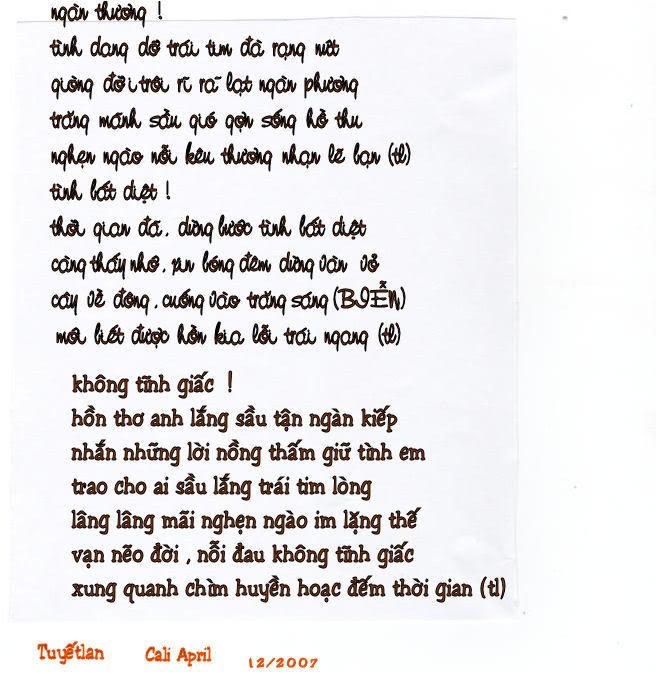 ngàn thương !
tình dang dỡ trái tim đà rạng nứt
giòng đời trôi rĩ rã lạt ngàn phương
trăng mảnh sầu gió gợn sóng hồ thu
nghẹn ngào nỗi kêu thương nhạn lẽ bạn (tl)
tình bất diệt !
thời gian đá, dừng bước tình bất diệt
càng thấy nhớ, xin bóng đêm dừng vàn vỏ
cây vẻ đông, cuống vào trăng sáng (BIỄN)
mới biết được hồn kia lỗi trái ngang (tl)
không tĩnh giấc !
hồn thơ anh lắng sầu tận ngàn kiếp
nhắn những lời nồng thấm giữ tình em
trao cho ai sầu lắng trái tim lòng
lâng lâng mãi nghẹn ngào im lặng thế
vạn nẽo đời , nỗi đau không tĩnh giấc
xung quanh chìm huyền hoạc đếm thời gian (tl)
Tuyếtlan Cali April 12/2007